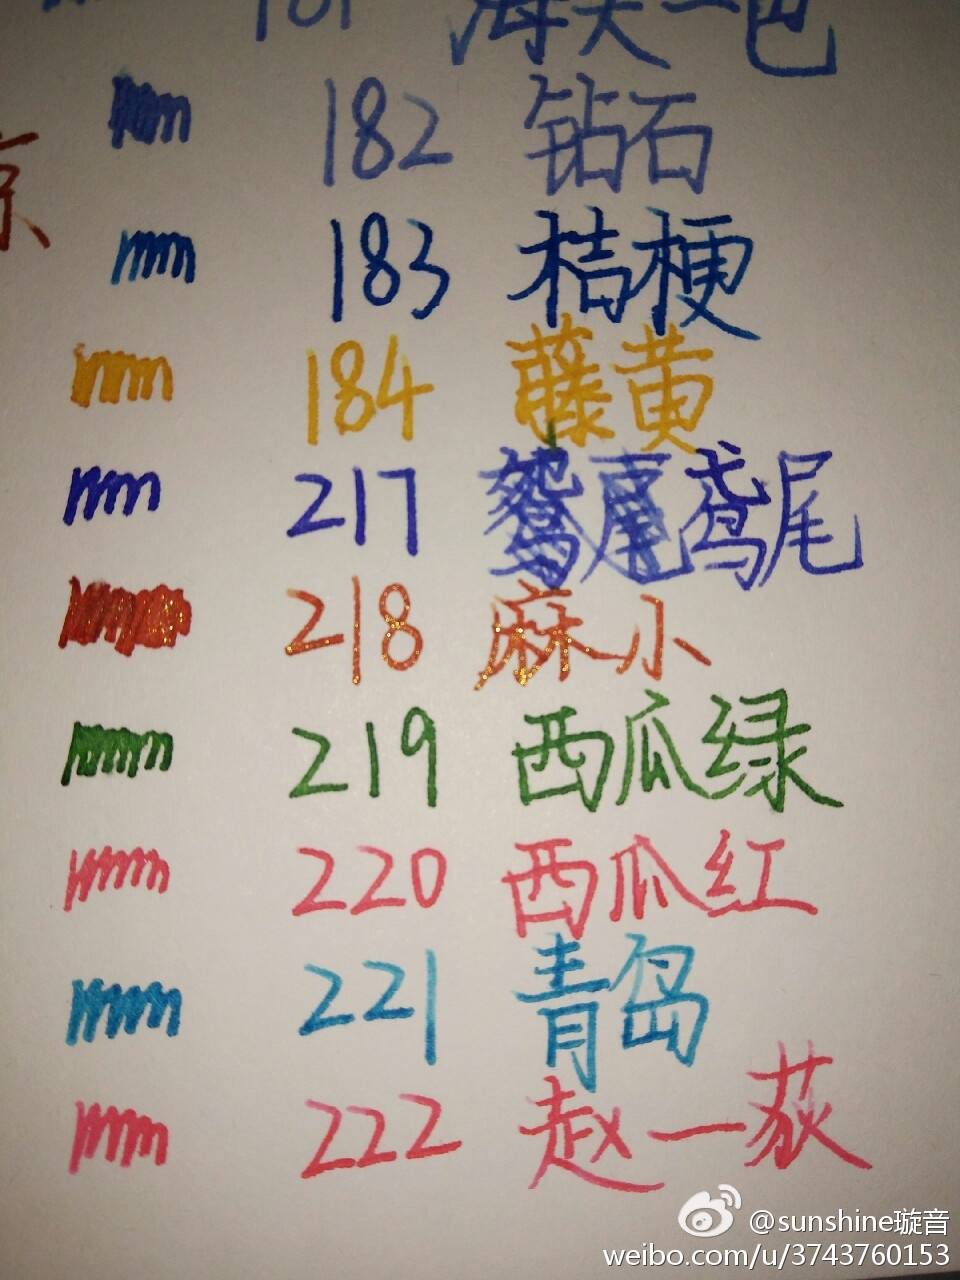 181 海天一色
182 钻石
京
183 桔梗
184 藤黄
217 鸢尾
218 麻小
219 西瓜绿
220 西瓜红
221 青岛
222 赵一荻
@sunshine璇音
weibo.com/u/3743760153